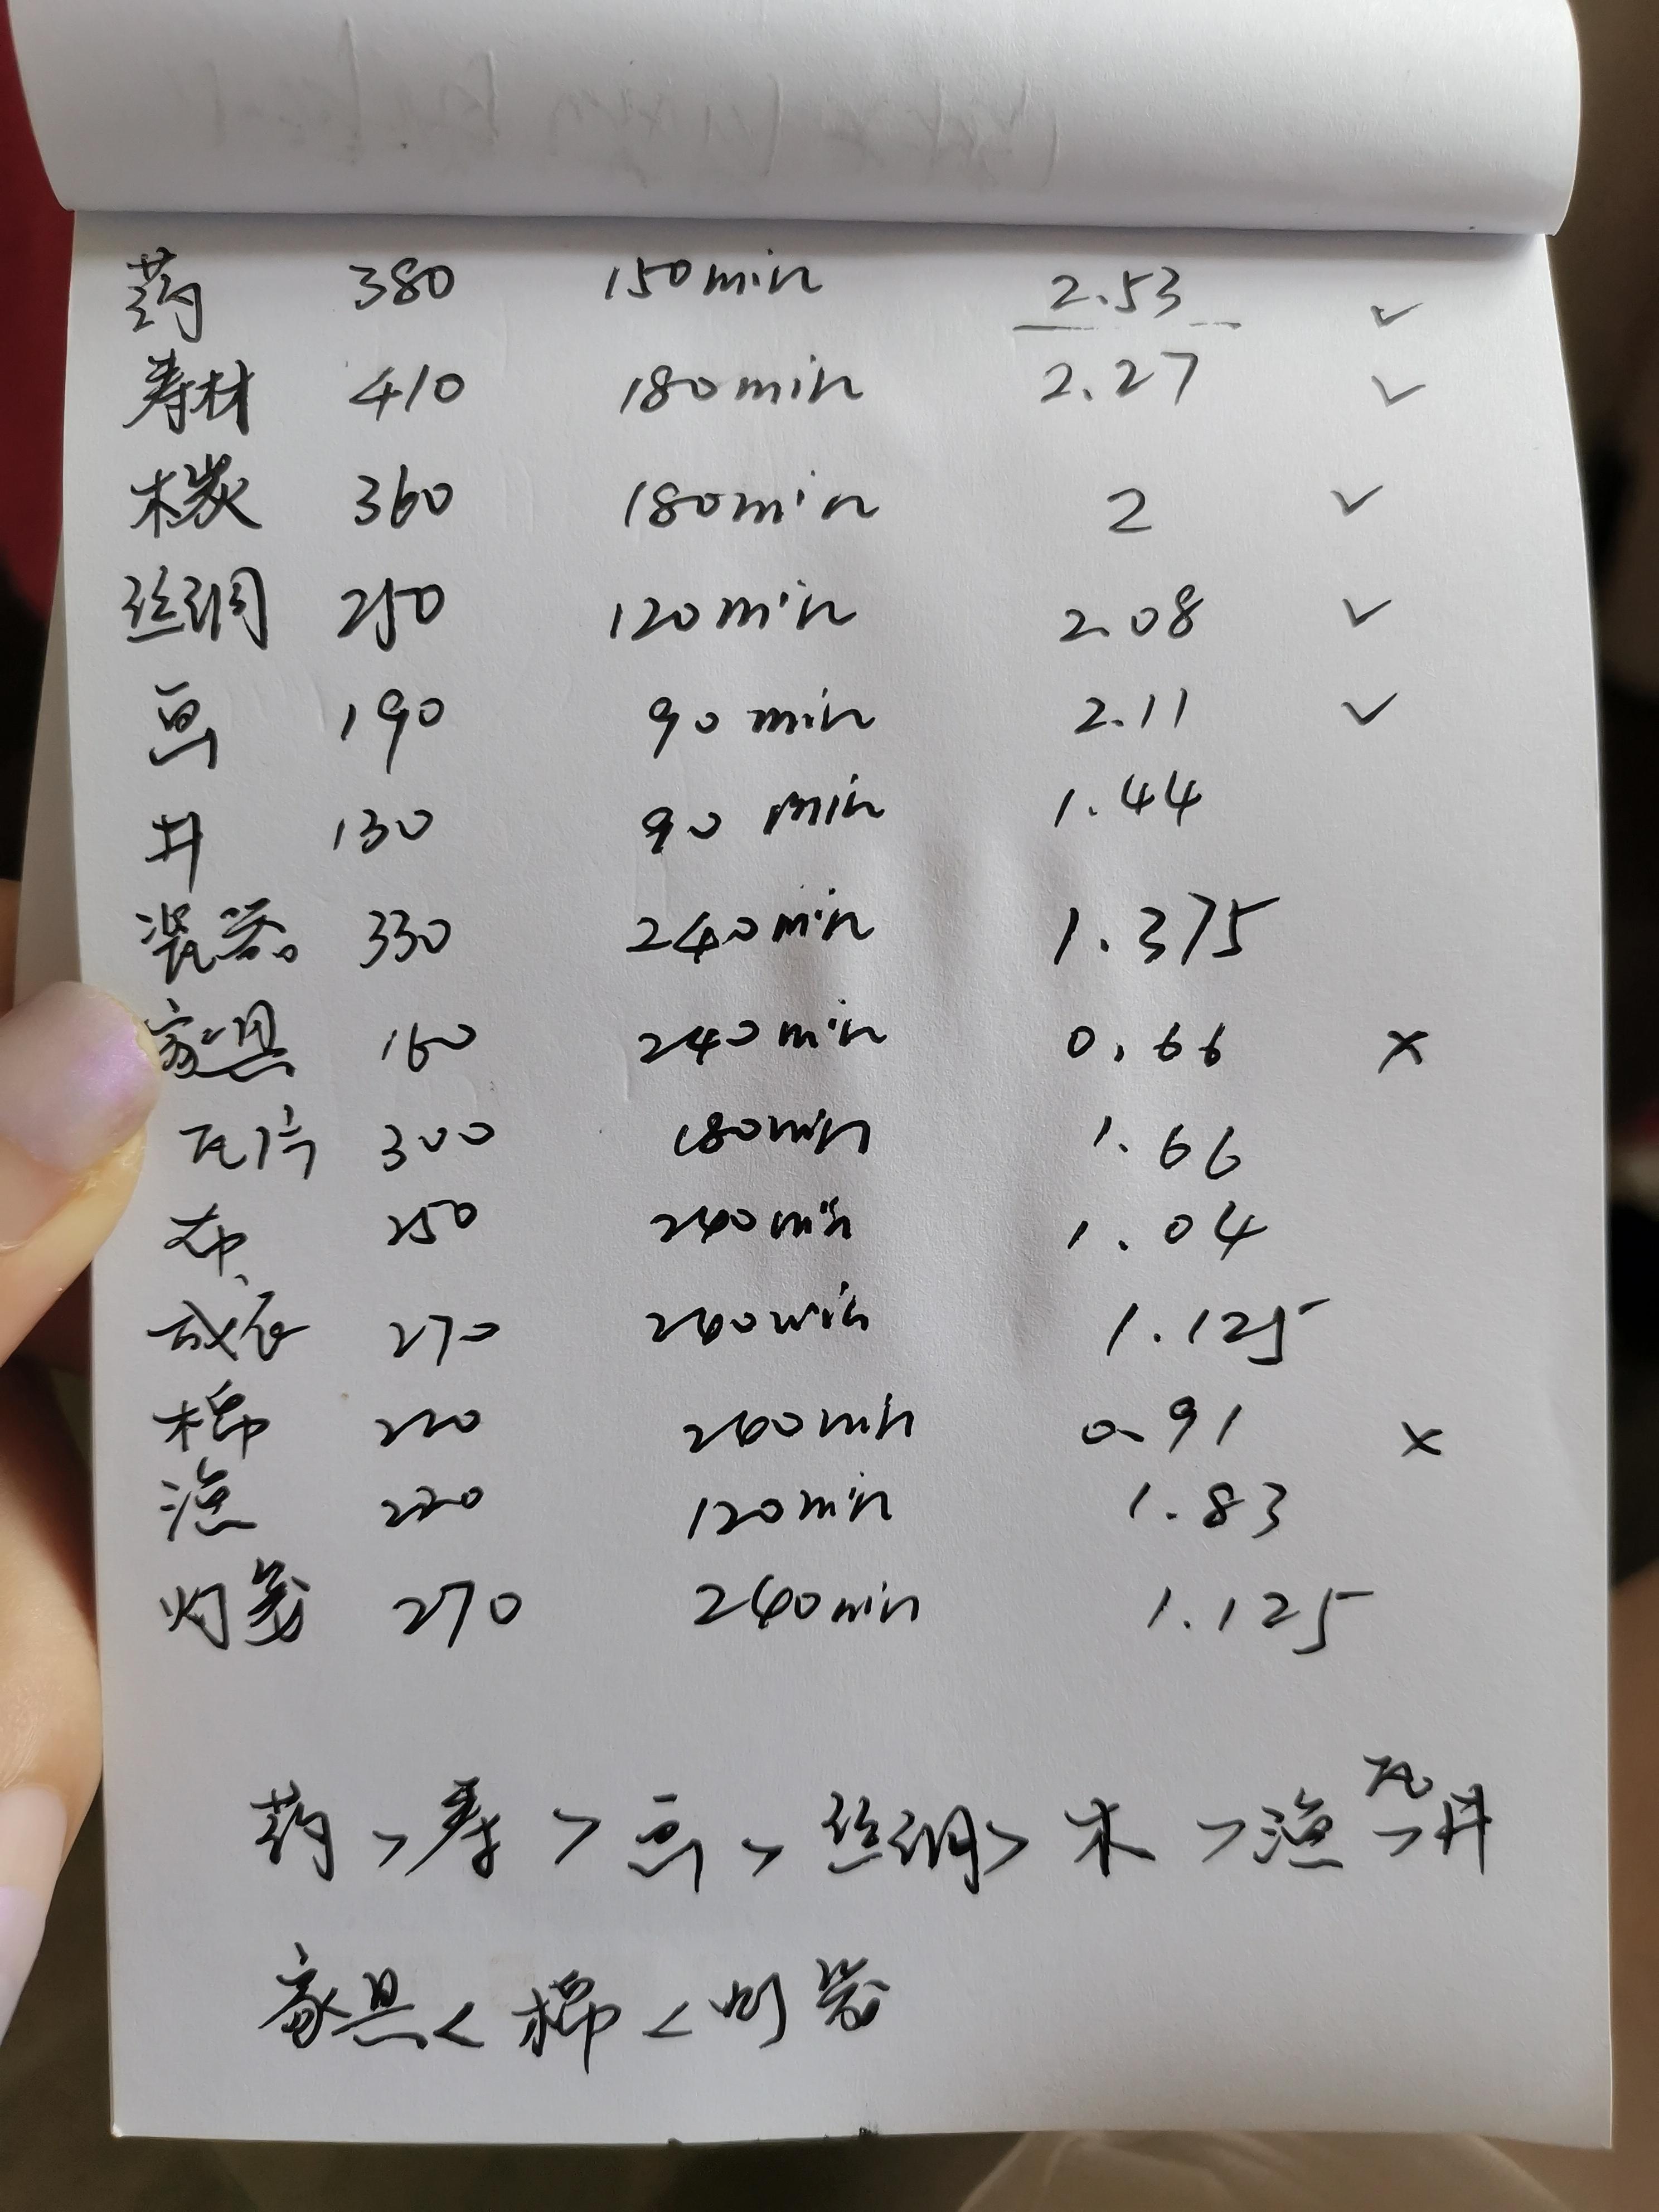 药 380 150min 2.53 ✓
寿材 410 180min 2.27 ✓
木炭 360 180min 2 ✓
丝绸 250 120min 2.08 ✓
豆 190 90min 2.11 ✓
井 130 90min 1.44
瓷器 330 240min 1.375
家具 160 240min 0.66 ×
瓦片 300 180min 1.66
布 250 240min 1.04
成衣 270 240min 1.125
棉 220 240min 0.91 ×
渔 220 120min 1.83
灯笼 270 240min 1.125
药>寿>豆>丝绸>木>渔>瓦井
家具<棉<灯笼